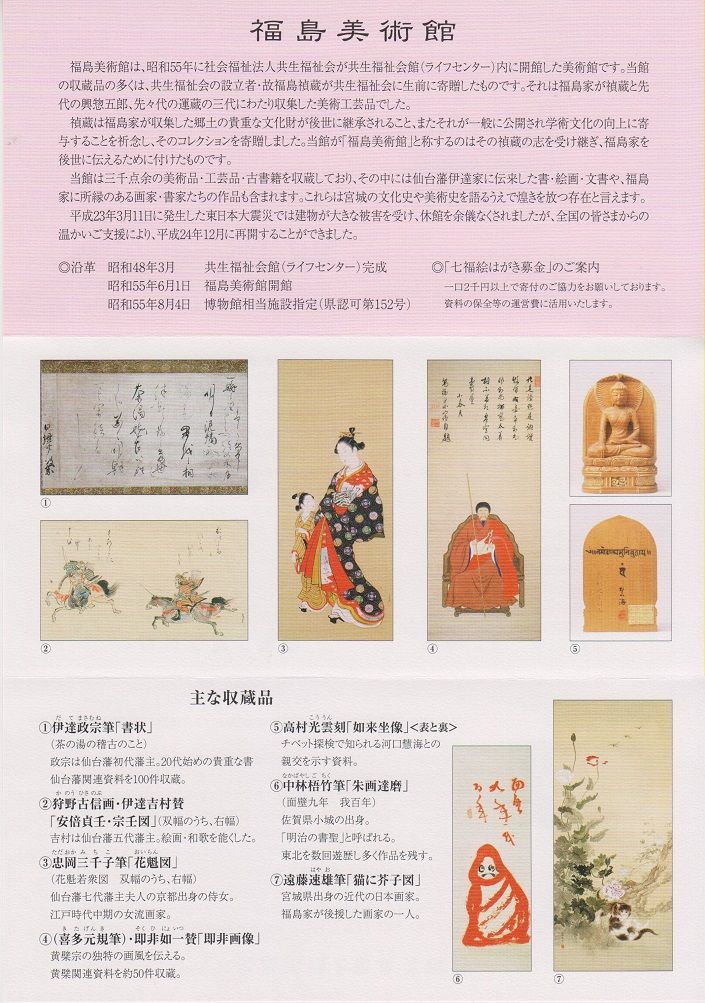 福島美術館
福島美術館は、昭和55年に社会福祉法人共生福祉会が共生福祉会館(ライフセンター)内に開館した美術館です。当館
の収蔵品の多くは、共生福祉会の設立者・故福島禎蔵が共生福祉会に生前に寄贈したものです。それは福島家が禎蔵と先
代の興惣五郎、先々代の運蔵の三代にわたり収集した美術工芸品でした。
禎蔵は福島家が収集した郷土の貴重な文化財が後世に継承されること、またそれが一般に公開され学術文化の向上に寄
与することを祈念し、そのコレクションを寄贈しました。当館が「福島美術館」と称するのはその禎蔵の志を受け継ぎ、福島家を
後世に伝えるために付けたものです。
当館は三千点余の美術品・工芸品・古書籍を収蔵しており、その中には仙台藩伊達家に伝来した書・絵画・文書や、福島
家に所縁のある画家・書家たちの作品も含まれます。これらは宮城の文化史や美術史を語るうえで煌きを放つ存在と言えます。
平成23年3月11日に発生した東日本大震災では建物が大きな被害を受け、休館を余儀なくされましたが、全国の皆さまからの
温かいご支援により、平成24年12月に再開することができました。
◎沿革 昭和48年3月 共生福祉会館(ライフセンター)完成
昭和55年6月1日 福島美術館開館
昭和55年8月4日 博物館相当施設指定(県認可第152号)
◎「七福絵はがき募金」のご案内
一口2千円以上で寄付のご協力をお願いしております。
資料の保全等の運営費に活用いたします。
①
②
③
④
⑤
主な収蔵品
だて まさむね
①伊達政宗筆「書状」
(茶の湯の稽古のこと)
政宗は仙台藩初代藩主。20代始めの貴重な書
仙台藩関連資料を100件収蔵。
かのう ひさのぶ
②狩野古信画・伊達吉村賛
「安倍貞壬・宗壬図」(双幅のうち、右幅)
吉村は仙台藩五代藩主。絵画・和歌を能くした。
ただおか みちこ おいらん
③忠岡三千子筆「花魁図」
(花魁若衆図 双幅のうち、右幅)
仙台藩七代藩主夫人の京都出身の侍女。
江戸時代中期の女流画家。
きた げんき そくひ にょいつ
④(喜多元規筆)・即非如一賛「即非画像」
黄檗宗の独特の画風を伝える。
黄檗関連資料を約50件収蔵。
こううん
⑤高村光雲刻「如来坐像」<表と裏>
チベット探検で知られる河口慧海との
親交を示す資料。
なかばやし ごちく
⑥中林梧竹筆「朱画達磨」
(面壁九年 我百年)
佐賀県小城の出身。
「明治の書聖」と呼ばれる。
東北を数回遊歴し多く作品を残す。
はやお
⑦遠藤速雄筆「猫に芥子図」
宮城県出身の近代の日本画家。
福島家が後援した画家の一人。
⑥
⑦